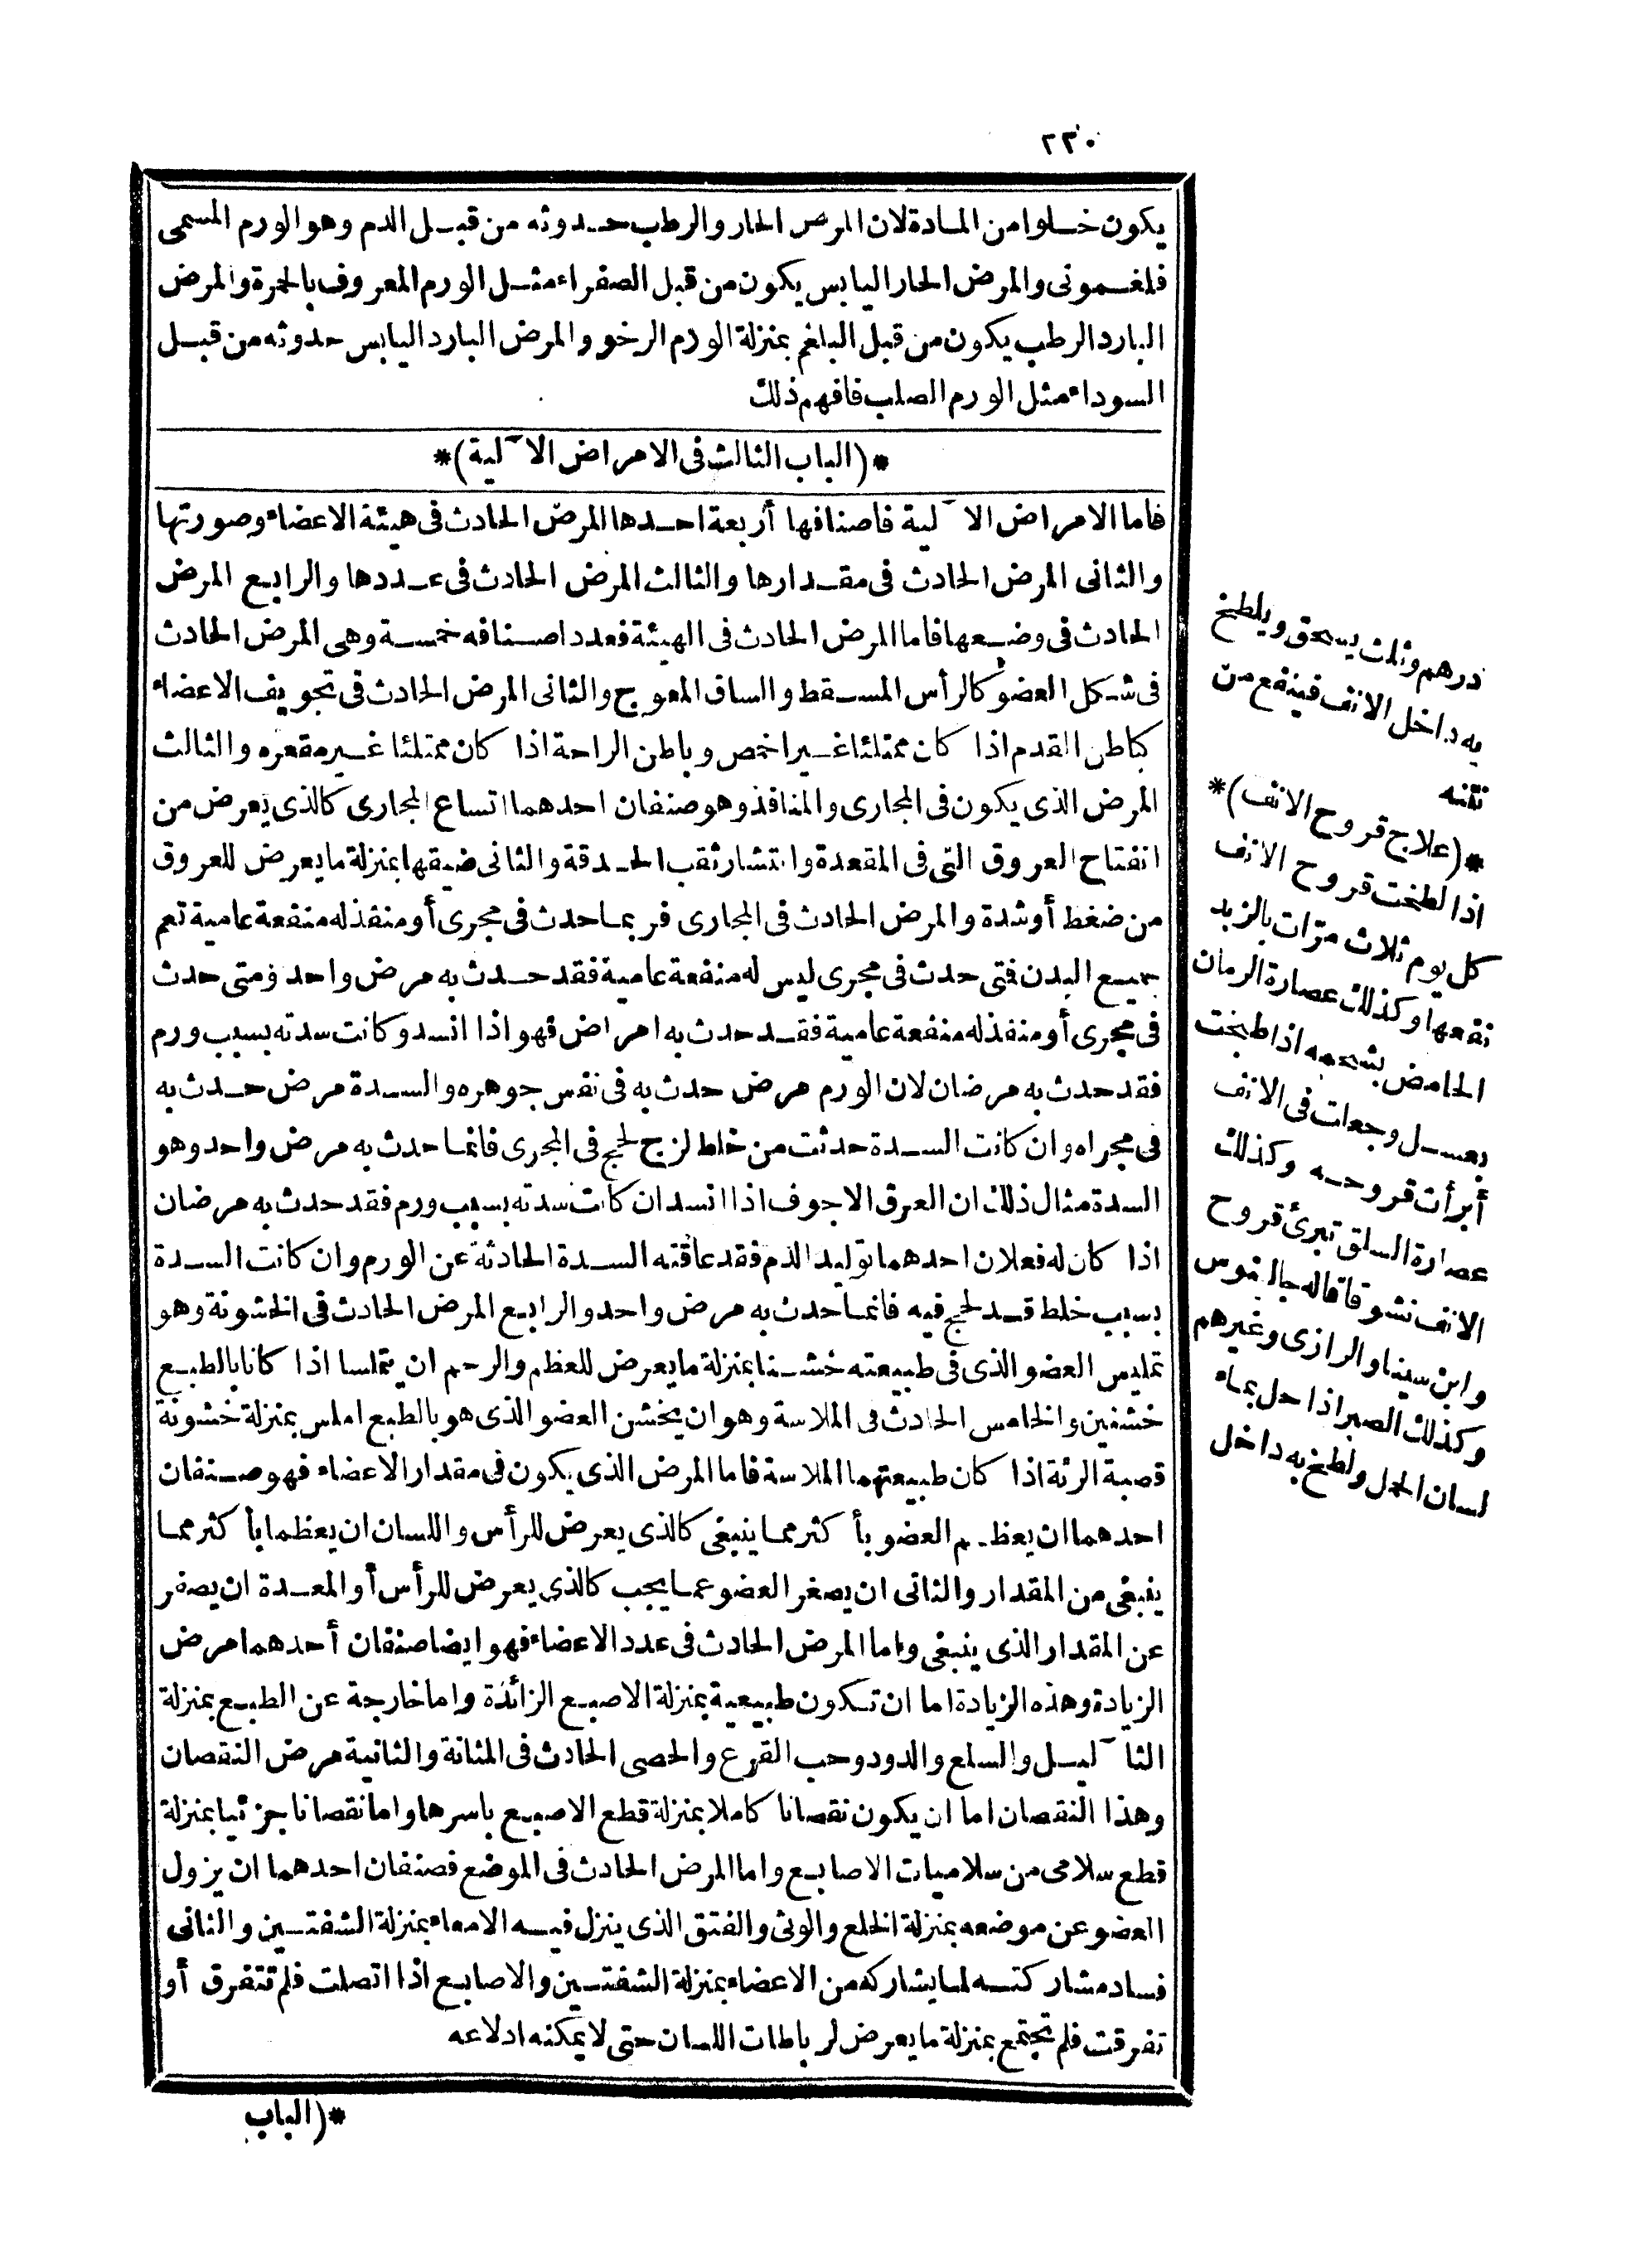 ٢٣٠
يكون خلوا من المادة لان المرض الحار والرطب حدوثه من قبل الدم وهو الورم المسمى
فلغمونى والمرض الحار اليابس يكون من قبل الصفراء مثل الورم المعروف بالحمرة والمرض
البارد الرطب يكون من قبل البلغم بمنزلة الورم الرخو والمرض البارد اليابس حدوثه من قبل
السوداء مثل الورم الصلب فافهم ذلك
*(الباب الثالث فى الامراض الآلية)*
فاما الامراض الآلية فاصنافها أربعة احدها المرض الحادث فى هيئة الاعضاء وصورتها
والثانى المرض الحادث فى مقدارها والثالث المرض الحادث فى عددها والرابع المرض
الحادث فى وضعها فاما المرض الحادث فى الهيئة فعدد اصنافه خمسة وهى المرض الحادث
فى شكل العضو كالرأس المسقط والساق المعوج والثانى المرض الحادث فى تجويف الاعضاء
كباطن القدم اذا كان ممتلئا غير اخمص وباطن الراحة اذا كان ممتلئا غير مقعره والثالث
المرض الذى يكون فى المجارى والمنافذ وهو صنفان احدهما اتساع المجارى كالذى يعرض من
انفتاح العروق التى فى المقعدة وانتشار ثقب الحدقة والثانى ضيقها بمنزلة ما يعرض للعروق
من ضغط أو شدة والمرض الحادث فى المجارى فربما حدث فى مجرى أو منفذ له منفعة عامية تعم
جميع البدن فتى حدث فى مجرى ليس له منفعة عامية فقد حدث به مرض واحد ومتى حدث
فى مجرى أو منفذ له منفعة عامية فقد حدث به امراض فهو اذا انسد وكانت سدته بسبب ورم
فقد حدث به مرضان لان الورم مرض حدث به فى نفس جوهره والسدة مرض حدث به
فى مجراه وان كانت السدة حدثت من خلط لزج لحج فى المجرى فانما حدث به مرض واحد وهو
السدة مثال ذلك ان العرق الاجوف اذا انسد ان كانت سدته بسبب ورم فقد حدث به مرضان
اذا كان له فعلان احدهما توليد الدم فقد عاقته السدة الحادثة عن الورم وان كانت السدة
بسبب خلط قد لحج فيه فانما حدث به مرض واحد والرابع المرض الحادث فى الخشونة وهو
تمليس العضو الذى فى طبيعته خشنا بمنزلة ما يعرض للعظم والرحم ان يتملسا اذا كانا بالطبع
خشنين والخامس الحادث فى الملاسة وهو ان يخشن العضو الذى هو بالطبع املس بمنزلة خشونة
قصبة الرئة اذا كان طبيعتهما الملاسة فاما المرض الذى يكون فى مقدار الاعضاء فهو صنفان
احدهما ان يعظم العضو بأكثر مما ينبغى كالذى يعرض للرأس واللسان ان يعظما بأكثر مما
ينبغى من المقدار والثانى ان يصغر العضو عما يجب كالذى يعرض للرأس أو المعدة ان يصغر
عن المقدار الذى ينبغى واما المرض الحادث فى عدد الاعضاء فهو ايضا صنفان أحدهما مرض
الزيادة وهذه الزيادة اما ان تكون طبيعية بمنزلة الاصبع الزائدة واما خارجة عن الطبع بمنزلة
الثآليل والسلع والدود وحب القرع والحصى الحادث فى المثانة والثانية مرض النقصان
وهذا النقصان اما ان يكون نقصانا كاملا بمنزلة قطع الاصبع باسرها واما نقصانا جزئيا بمنزلة
قطع سلامى من سلاميات الاصابع واما المرض الحادث فى الموضع فصنفان احدهما ان يزول
العضو عن موضعه بمنزلة الخلع والوثى والفتق الذى ينزل فيه الامعاء بمنزلة الشفتين والثانى
فساد مشاركته لما يشاركه من الاعضاء بمنزلة الشفتين والاصابع اذا اتصلت فلم تتفرق أو
تفرقت فلم تجتمع بمنزلة ما يعرض لرباطات اللسان حتى لا يمكنه ادلاعه
*(الباب
درهم وثلث يسحق ويلطخ
به داخل الانف فينفع من
نتنه
*(علاج قروح الانف)*
اذا لطخت قروح الانف
كل يوم ثلاث مرّات بالزبد
نقعها وكذلك عصارة الرمان
الحامض بشحمه اذا طبخت
بعسل وجعلت فى الانف
أبرأت قروحه وكذلك
عصارة السلق تبرئ قروح
الانف نشوقا قاله جالينوس
وابن سينا والرازى وغيرهم
وكذلك الصبر اذا حل بماء
لسان الحمل ولطخ به داخل